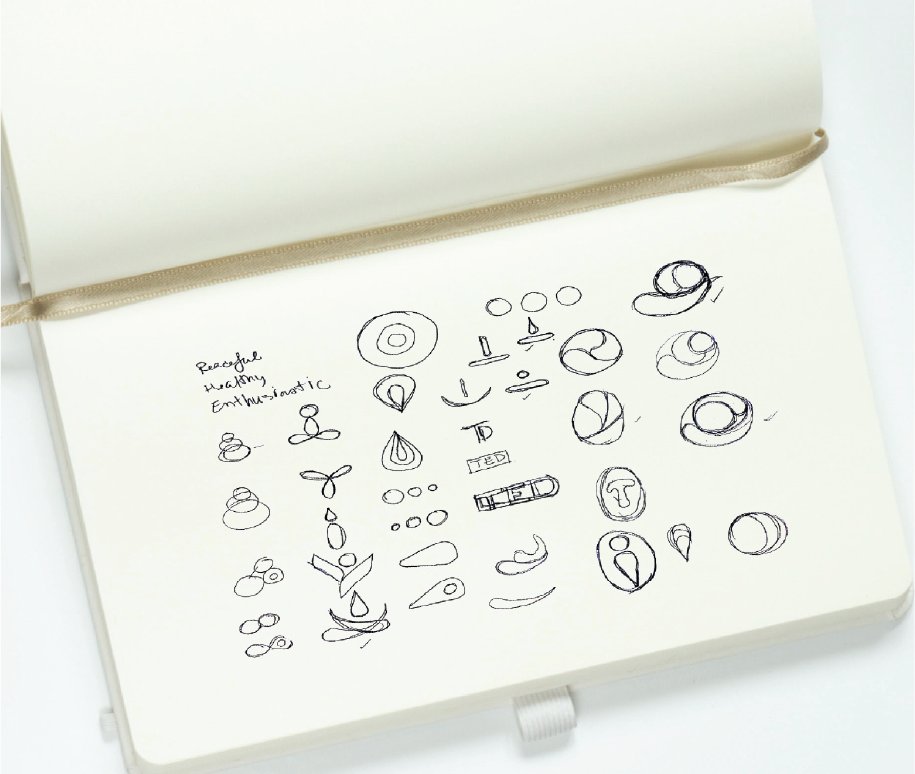 Peaceful
Healthy
Enthusiastic
TD
TED
TED